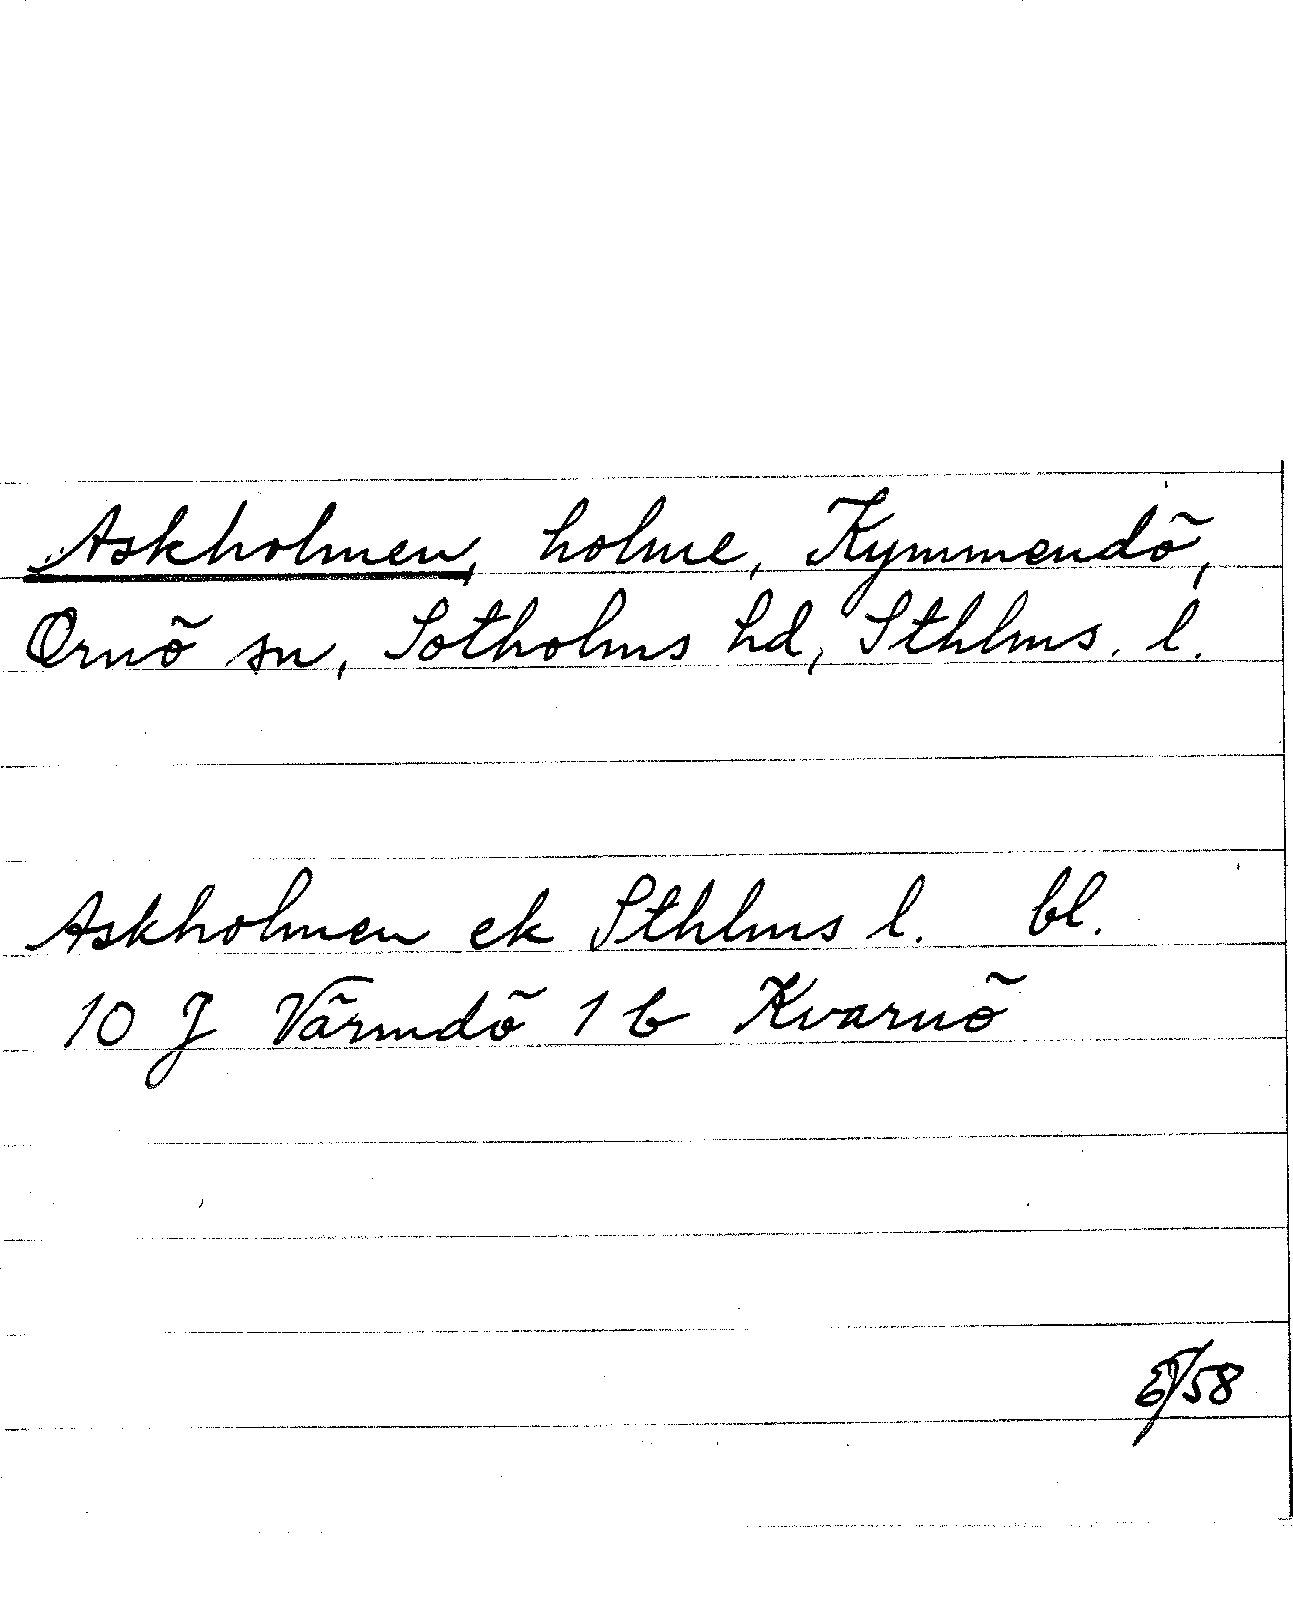 Askholmen, holme, Kymmendö,
Ornö sn, Sotholms hd, Sthlms. l.
Askholmen ek Sthlms l. bl.
10 J Värmdö 1 b Kvarnö
/58